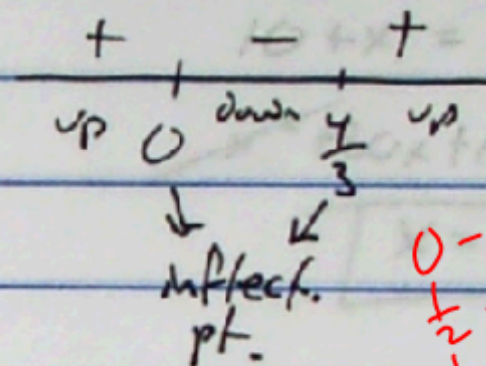 + − +
up 0 down 4/3 up
inflect.
pt.
0 -
1/2